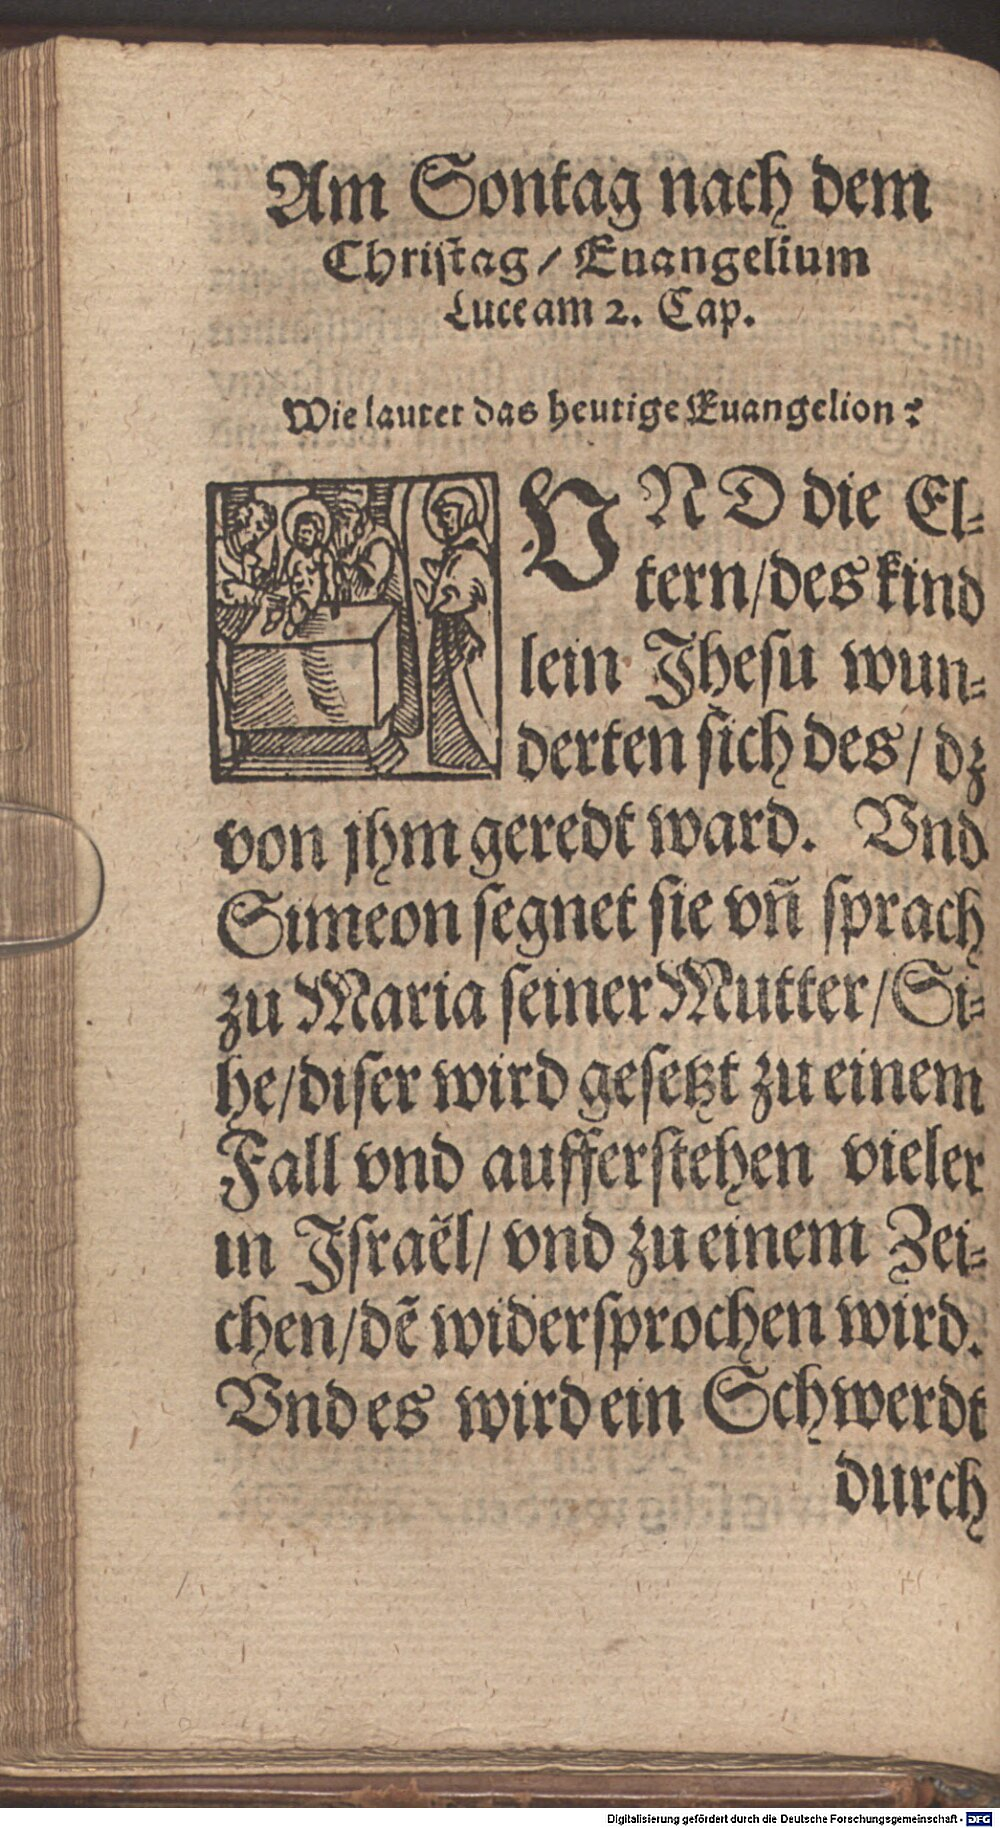 Am Sontag nach dem
Christag / Euangelium
Luce am 2. Cap.
Wie lautet das heutige Euangelion?
VND die El⸗
tern/des kind
lein Jhesu wun⸗
derten sich des/ dz
von jhm geredt ward. Vnd
Simeon segnet sie vñ sprach
zu Maria seiner Mutter/Si⸗
he/diser wird gesetzt zu einem
Fall vnd aufferstehen vieler
in Jsraël/ vnd zu einem Zei⸗
chen/dẽ widersprochen wird.
Vnd es wird ein Schwerdt
durch
Digitalisierung gefördert durch die Deutsche Forschungsgemeinschaft - DFG